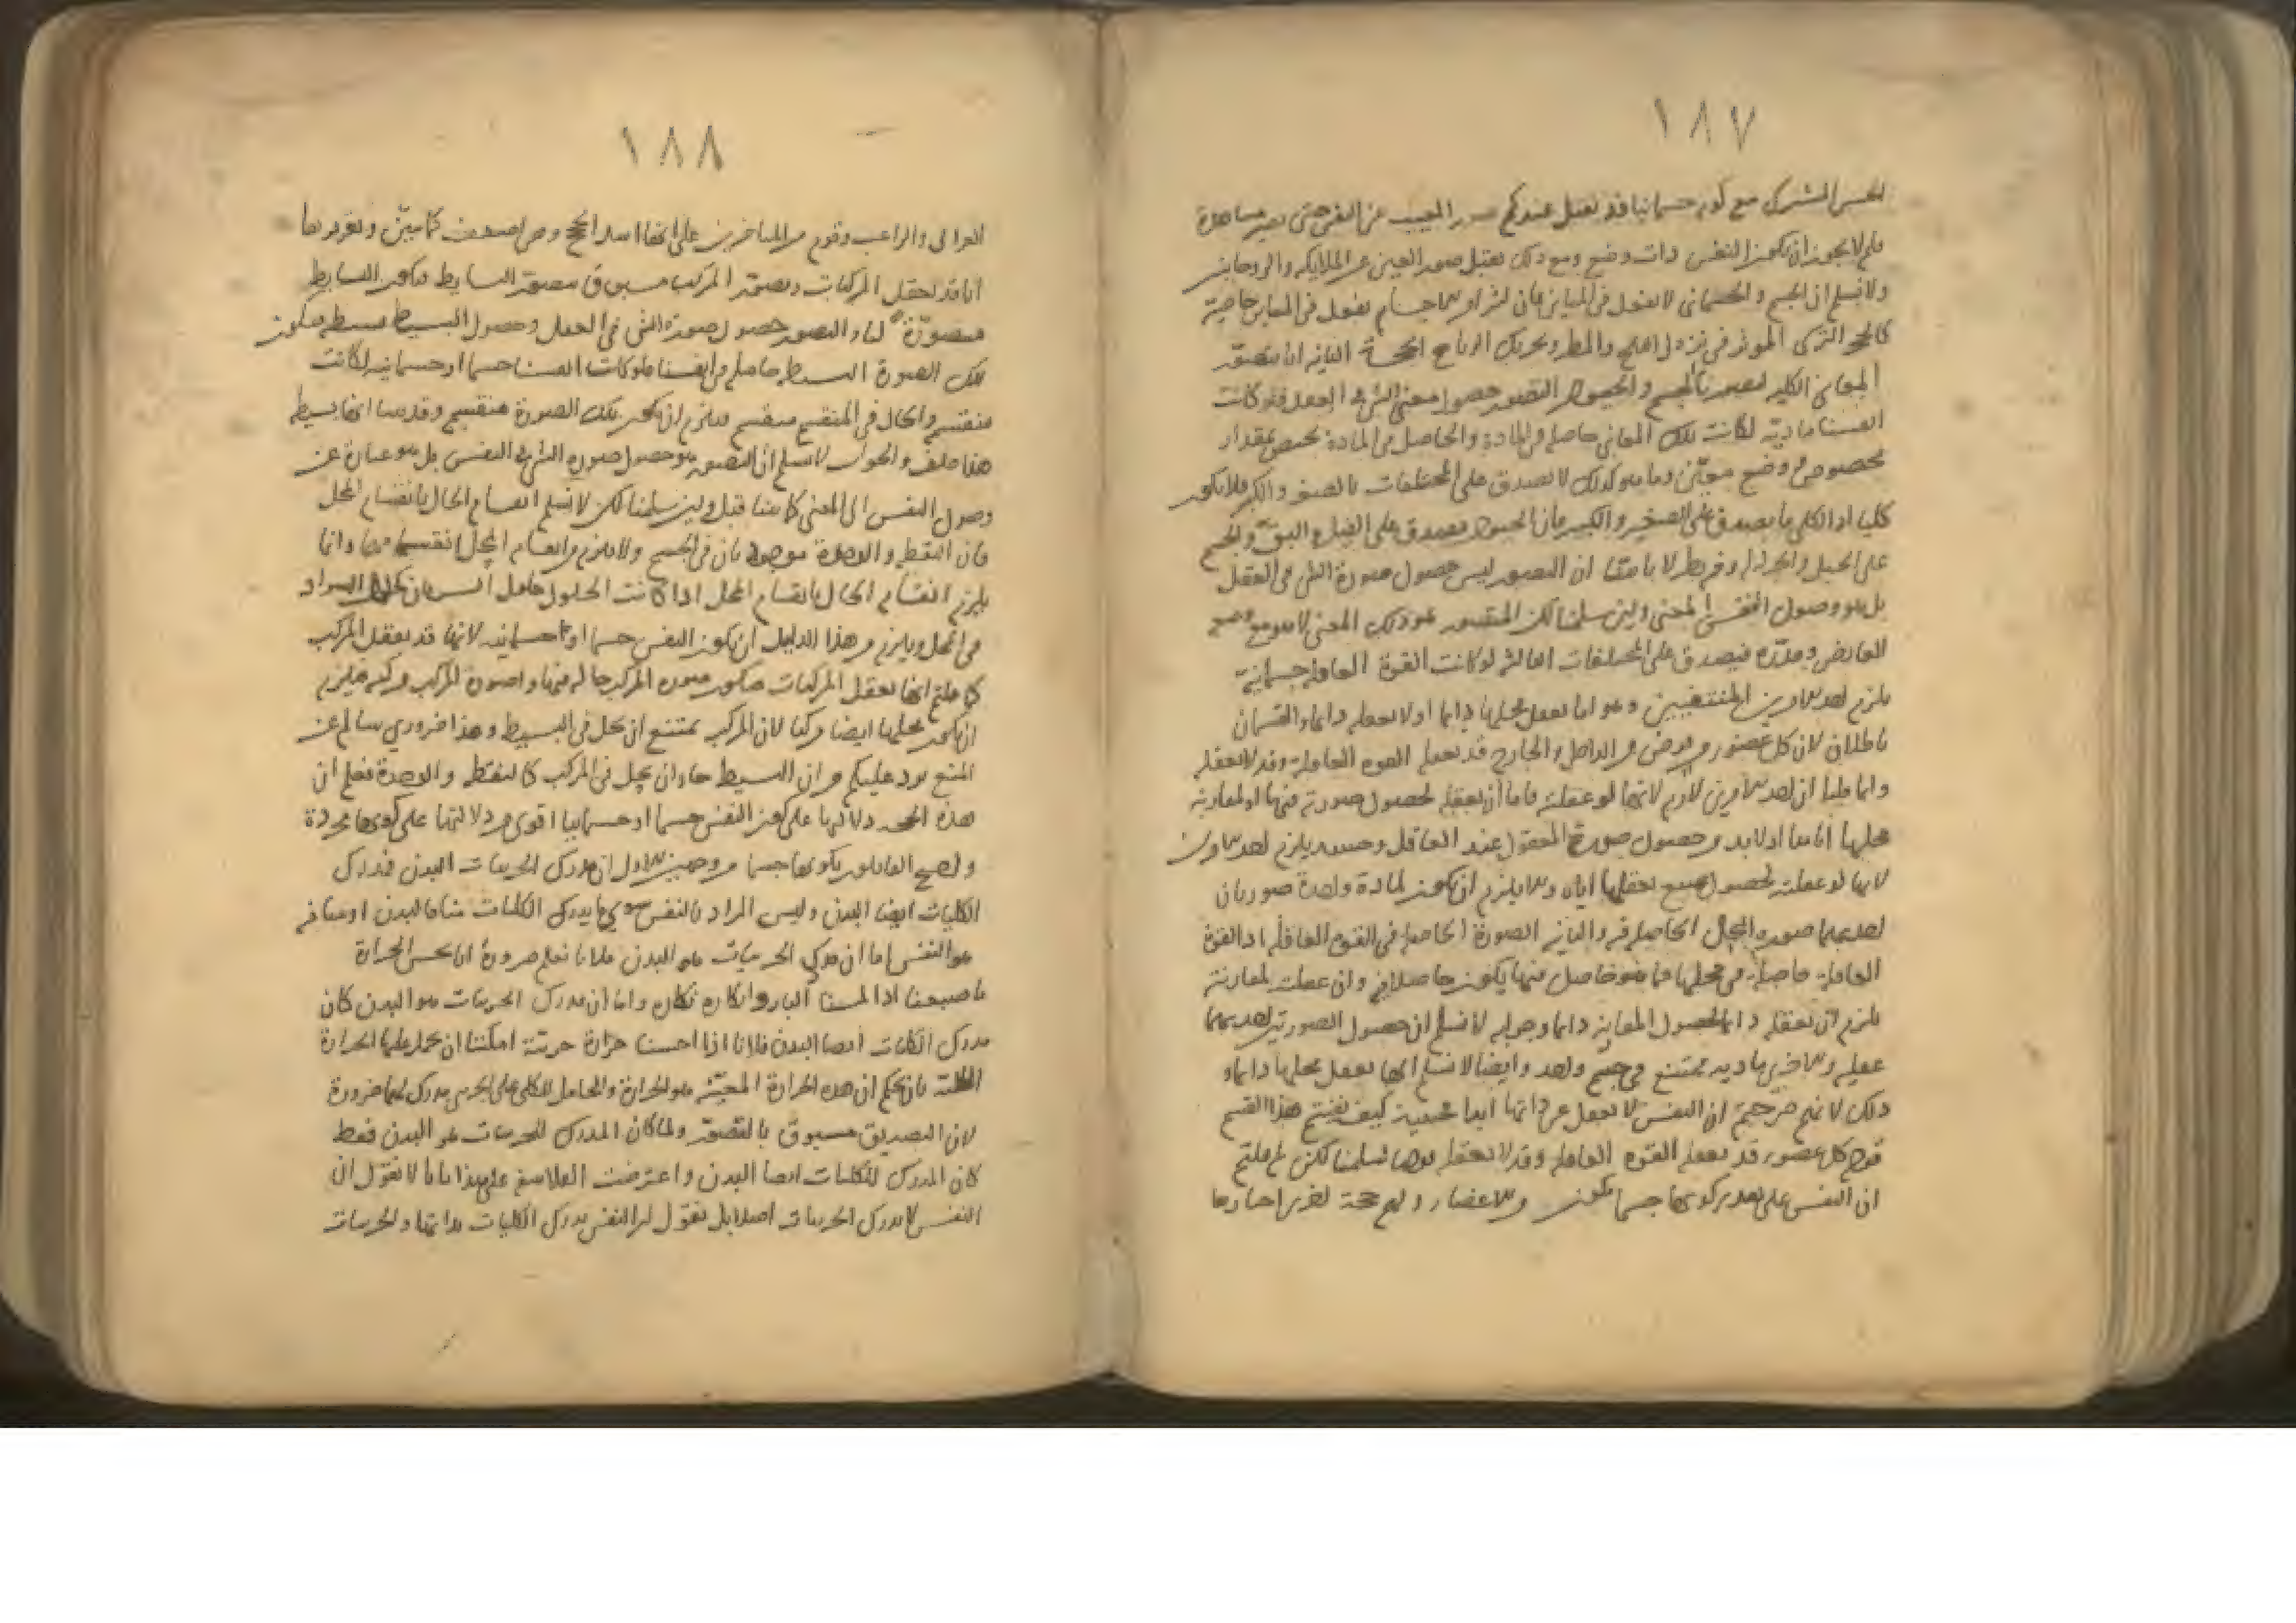 ١٨٧
الحس المشترك مع كونه جسمانيا فقد تقبل عندكم صور المغيب عن النفس حتى تصير مشاهدة
فلم لا يجوز ان تكون النفس ذات وضع ومع ذلك تقبل صور الغيب من الملايكة والروحانيين
ولا نسلم ان الجسم والجسماني لا يفعل في المباين فان كثيرا من الاجسام يفعل في المباين خاصية
كالحجر التركي الموثر في نزول الثلج والمطر وتحريك الرياح الحجة الثانية انا نتصور
المعاني الكلية كصورتنا الجسم والحيوان والتصور حصول معنى الشي في العقل فلو كانت
انفسنا مادية لكانت تلك المعاني حاصلة في المادة والحاصل في المادة يختص بمقدار
مخصوص ووضع معين وما هو كذلك لا يصدق على المختلفات بالصغر والكبر فلا يكون
كليا اذ الكلي ما يصدق على الصغير والكبير فان الحيوان يصدق على الفيل والبق والجسم
على الجبل والخردلة وفيه نظر لانا بينا ان التصور ليس حصول صورة الشي في العقل
بل هو وصول النفس الى المعنى ولين سلمنا لكن المتصور هو ذلك المعنى لا هو مع وضع
العارض ومقداره فيصدق على المختلفات الثالثة لو كانت القوة العاقلة جسمانية
يلزم احد الامرين المنتفيين وهو اما تعقل محلها دايما او لا تعقله دايما والقسمان
باطلان لان كل عضو يفرض من الداخل والخارج قد تعقله القوة العاقلة وقد لا تعقله
وانما قلنا ان احد الامرين لازم لانها لو عقلت فاما ان تعقله لحصول صورته فيها او لمقارنة
محلها اياها اذ لابد من حصول صورة المعقول عند العاقل وحينئذ يلزم احد الامرين
لانها لو عقلت لحصول تعقلها اياه والا يلزم ان يكون لمادة واحدة صورتان
احديهما صورة المحل الحاصلة فيه والثانية الصورة الحاصلة في القوة العاقلة اذ القوة
العاقلة حاصلة في محلها فما هو حاصل فيها يكون حاصلا فيه وان عقلت لمقارنته
يلزم ان تعقله دايما لحصول المقارنة دايما وجوابه لا نسلم ان حصول الصورتين احديهما
عقلية والاخرى مادية ممتنع في جسم واحد وايضا لا نسلم انها تعقل محلها دايما و
ذلك لانكم صرحتم ان النفس لا تغفل عن ذاتها ابدا فحينئذ كيف يمتنع هذا القسم
قوله كل عضو قد تعقله القوة العاقلة وقد لا تعقله سلمنا لكن لم قلتم
ان النفس على تقدير كونها جسما تكون من الاعضاء ولهم حجة اخرى اختارها
١٨٨
الغزالي والراغب وقوم من المتاخرين على انها اسد الحجج وهي اضعف كما نبين وتقريرها
انا قد نعقل المركبات وتصور المركب مسبوق بتصور البسايط فتكون البسايط
متصورة لنا والتصور حصول صورة الشي في العقل وحصول البسيط بسيط فتكون
تلك الصورة البسيطة حاصلة في انفسنا فلو كانت انفسنا جسما او جسمانية لكانت
منقسمة والحال في المنقسم منقسم فيلزم ان تكون تلك الصورة منقسمة وقد بينا انها بسيطة
هذا خلف والجواب لا نسلم ان التصور هو حصول صورة الشي في النفس بل هو عبارة عن
وصول النفس الى المعنى كما بينا قبل ولين سلمنا لكن لا نسلم انقسام الحال بانقسام المحل
فان النقطة والوحدة موجودتان في الجسم ولا يلزم من انقسام المحل انقسامهما وانما
يلزم انقسام الحال بانقسام المحل اذا كانت الحلول حلول السريان كحلول السواد
في المحل ويلزم من هذا الدليل ان تكون النفس جسما او جسمانية لانها قد تعقل المركب
كما قلتم انها تعقل المركبات فتكون صورة المركب حالة فيها وصورة المركب مركبة فيلزم
ان يكون محلها ايضا مركبا لان المركب يمتنع ان يحل في البسيط وهذا ضروري سالم عن
المنع يرد عليكم من ان البسيط جاز ان يحل في المركب كالنقطة والوحدة فعلم ان
هذه الحجة دلالتها على كون النفس جسما او جسمانيا اقوى من دلالتها على كونها مجردة
واحتج القايلون بكونها جسما من وجهين الاول ان مدرك الجزييات البدن فمدرك
الكليات ايضا البدن وليس المراد بالنفس سوى ما يدرك الكليات
هو النفس اما ان مدرك الجزييات هو البدن فلانا نعلم ضرورة انا نحس الحرارة
باصبعنا اذا لمسنا النار وانكاره مكابرة واما ان مدرك الجزييات هو البدن كان
مدرك الكليات ايضا البدن فلانا اذا احسسنا حرارة جزيية امكننا ان نحمل عليها الحرارة
الكلية بان نحكم ان هذه الحرارة المعينة هو الحرارة والحامل للكلي على الجزيي مدرك لهما ضرورة
لان التصديق مسبوق بالتصور ولما كان المدرك للجزييات هو البدن فقط
كان المدرك للكليات ايضا البدن واعترضت الفلاسفة على هذا بانا لا نقول ان
النفس لا تدرك الجزييات اصلا بل نقول ان النفس تدرك الكليات بذاتها والجزييات